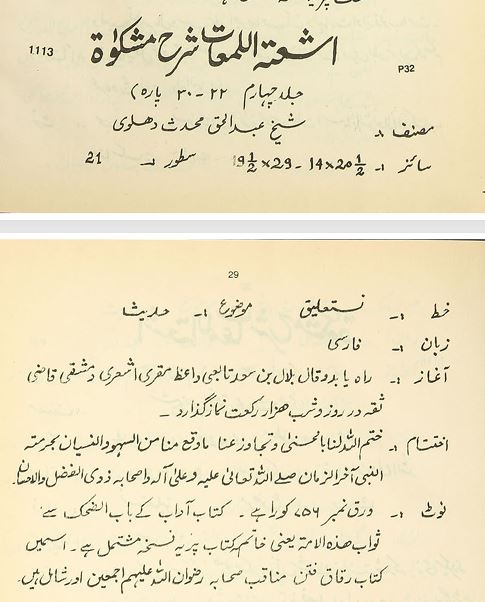 اشعتہ اللمعات شرح مشکوٰۃ 1113
P32
جلد چہارم ۲۲ - ۳۰ پارہ)
مصنف :۔ شیخ عبدالحق محدث دھلوی
سائز :۔ 14x20½ - 19½x29 سطور :۔ 21
29
خط :۔ نستعلیق موضوع :۔ حدیث
زبان :۔ فارسی
آغاز :۔ راہ یابد وقال بلال بن سعد تابعی واعظ مقری اشعری دمشقی قاضی
ثقہ در روز و شب ھزار رکعت نماز گذارد ۔
اختتام :۔ ختم اللہ لنا بالحسنیٰ و تجاوز عنا ما وقع منا من السہو والنسیان بحرمتہ
النبی آخر الزمان صلے اللہ تعالیٰ علیہ وعلیٰ آلہ واصحابہ ذوی الفضل والاحسان۔
نوٹ :۔ ورق نمبر ۷۵۶ کورا ہے ۔ کتاب آداب کے باب الضحک سے
ثواب ھذہ الامۃ یعنی خاتمہ کتاب پر یہ نسخہ مشتمل ہے ۔ اسمیں
کتاب رقاق فتن مناقب صحابہ رضوان اللہ علیہم اجمعین اور شامل ہیں۔